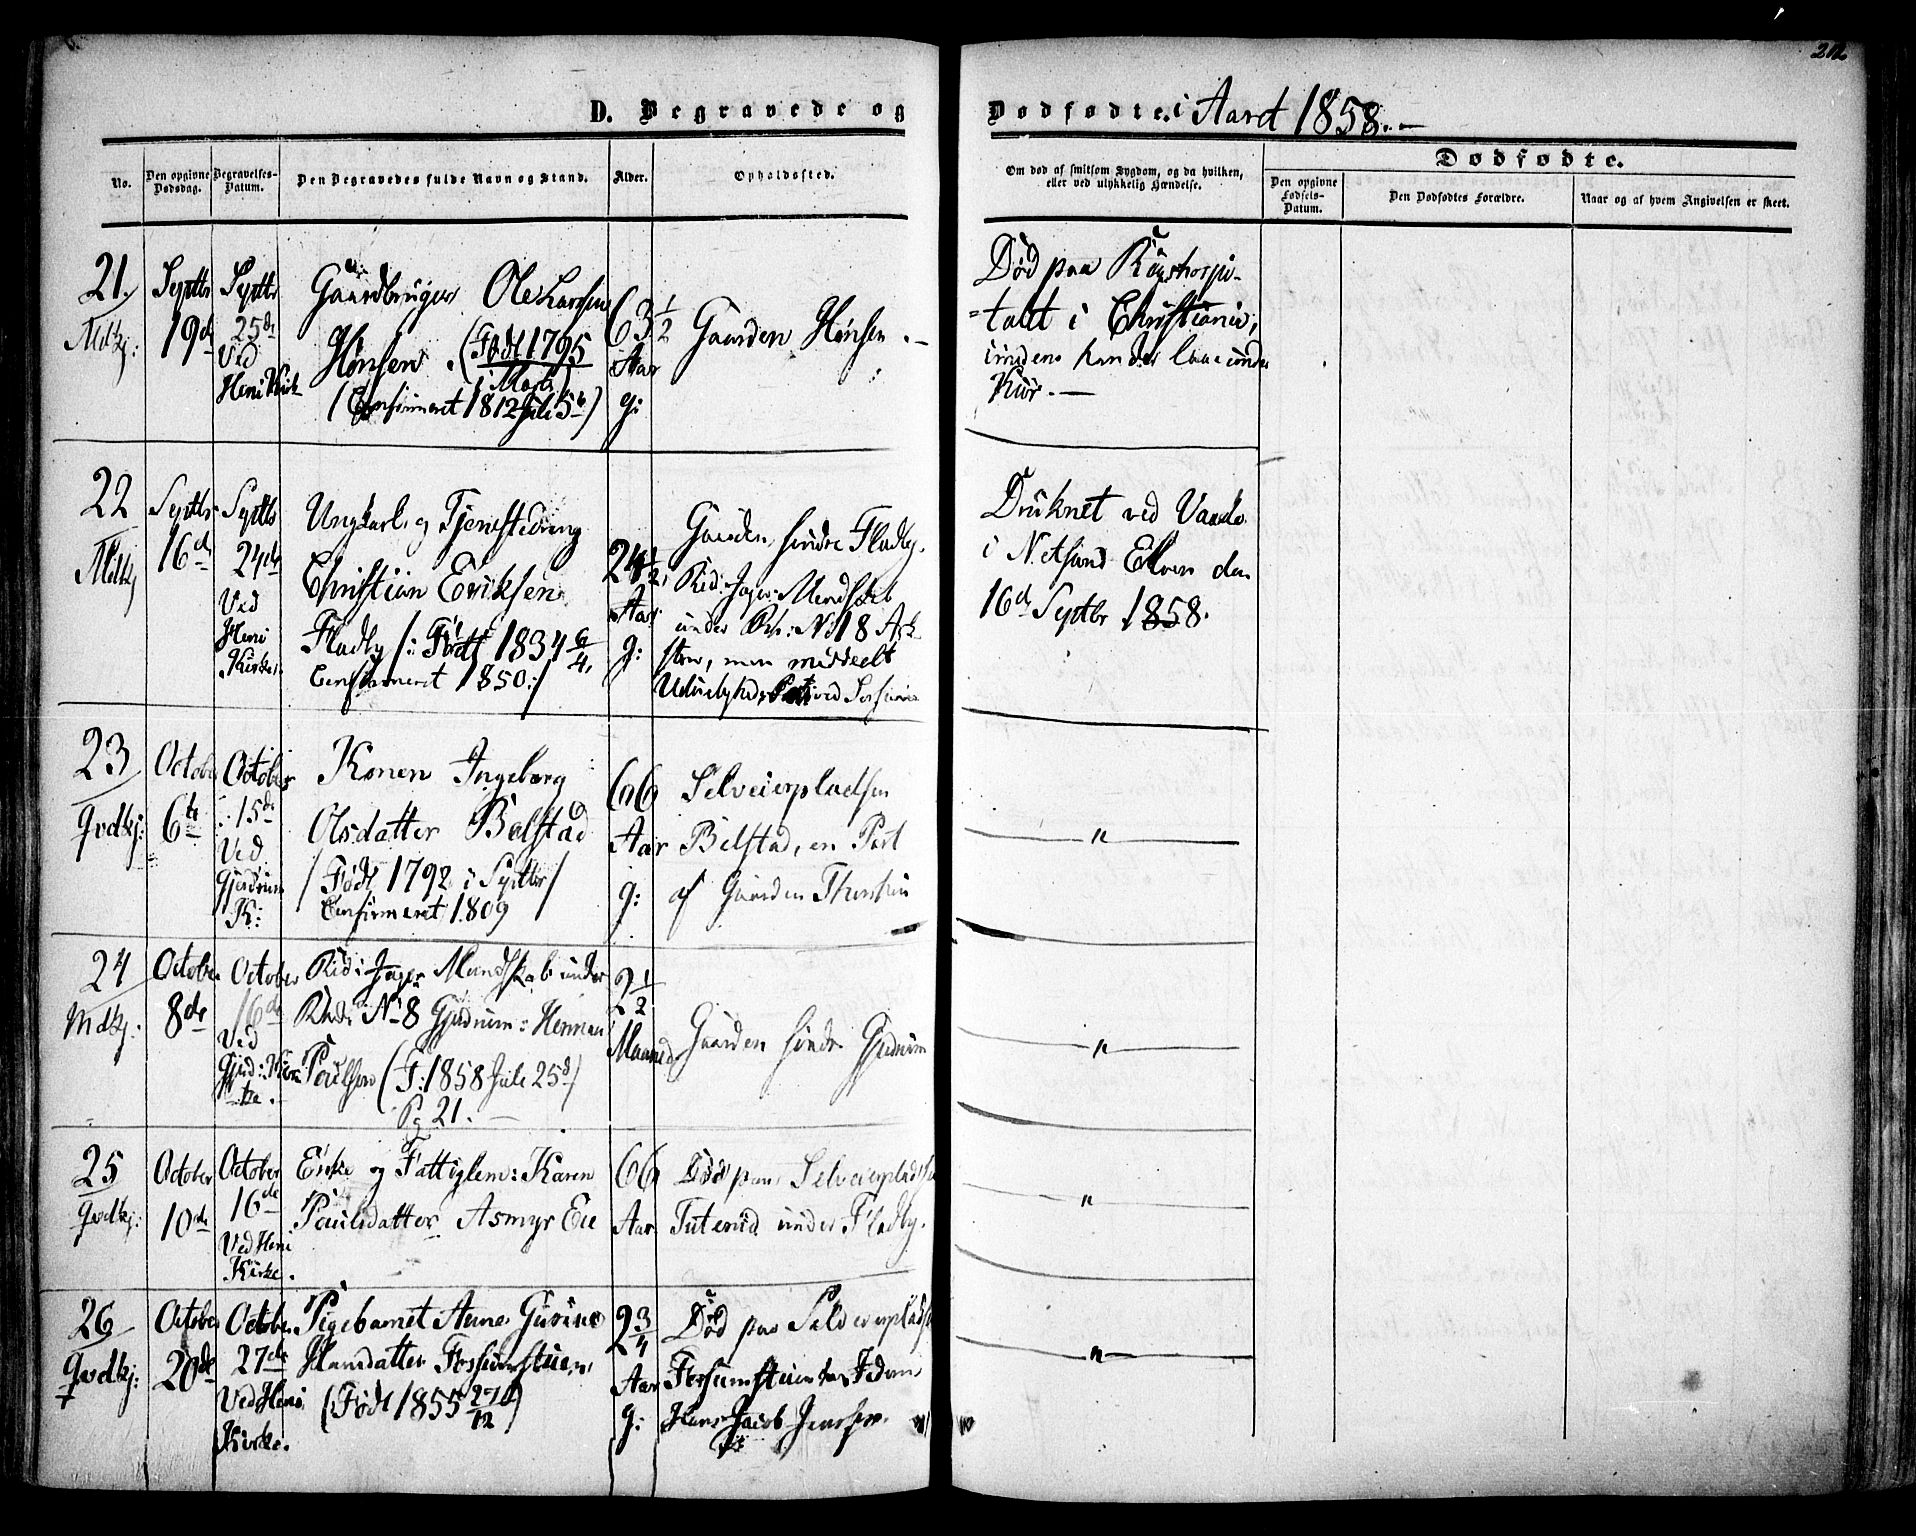 212
D. Begravede og Dødfødte. i Aaret 1858.-
No.
Den opgivne Dødsdag.
Begravelses-Datum.
Den Begravedes fulde Navn og Stand.
Alder.
Opholdssted.
Om død af smitsom Sygdom, og da hvilken,
eller ved ulykkelig Hændelse.
Dødfødte.
Den opgivne
Fødsels-
Datum.
Den Dødfødtes Forældre.
Naar og af hvem Angivelsen er skeet.
21.
Mdkj:
Septbr
19de
Septbr
25de
Ved
Heni Kirk
Gaardbruger Ole Larssen
Hønsen. (Født 1795
i Marts)
(Confirmeret 1812 Juli 5te)
63 1/2
Aar
g:
Gaarden Hønsen.-
Død paa Rigshospi-
=talet i Christiania,
imidens han der laae under
Kur.-
22
Mdkj
Septbr
16de
Septbr
24de
Ved
Heni
Kirke.
Ungkarl og Tjenestedreng
Christian Eriksen
Fladby /: Født 1834 6/4,
Confirmeret 1850:/
24 1/2
Aar
g:
Gaarden søndre Fladby.
Rid: Jæger: Mandskab
under No 18 Ask
men meddeelt
ved
Druknet ved Vaade
i Nitsund Elven den
16de Septbr 1858.
23
Qvdkj:
October
6te
October
15de
Ved
Gjerdrum
K:
Konen Ingeborg
Olsdatter Bølstad
/ Født 1792 i Septbr /
Confirmeret 1809
66
Aar
g:
Selveierpladsen
Bølstad, en Part
af Gaarden
"
24
Mdkj:
October
8de
October
16de
Ved
Gjerd: Kir
ke.
Rid: Jæger Mandskab under
No 8 Gjerdrum: Herman
Poulsen (F: 1858 Juli 25de)
Pg 21.-
2 1/2
Maaned
Gaarden søndre Gjerdrum
"
25
Qvdkj:
October
10de
October
16de
Ved Heni
Kirke.
Enke og Fattiglem: Karen
Paulsdatter Asmyr Eie
66
Aar
Død paa Selveierpladsen
under Fladby.
"
26
Qvdkj:
October
20de
October
27de
Ved Heni
Kirke.
Pigebarnet Anne Gurine
Hansdatter Fossumstuen
(Født 1855 27/12)
2 3/4
Aar
g:
Død paa Selveierpladsen
Fossumstuen
Hans Jacob Jenssen.
"